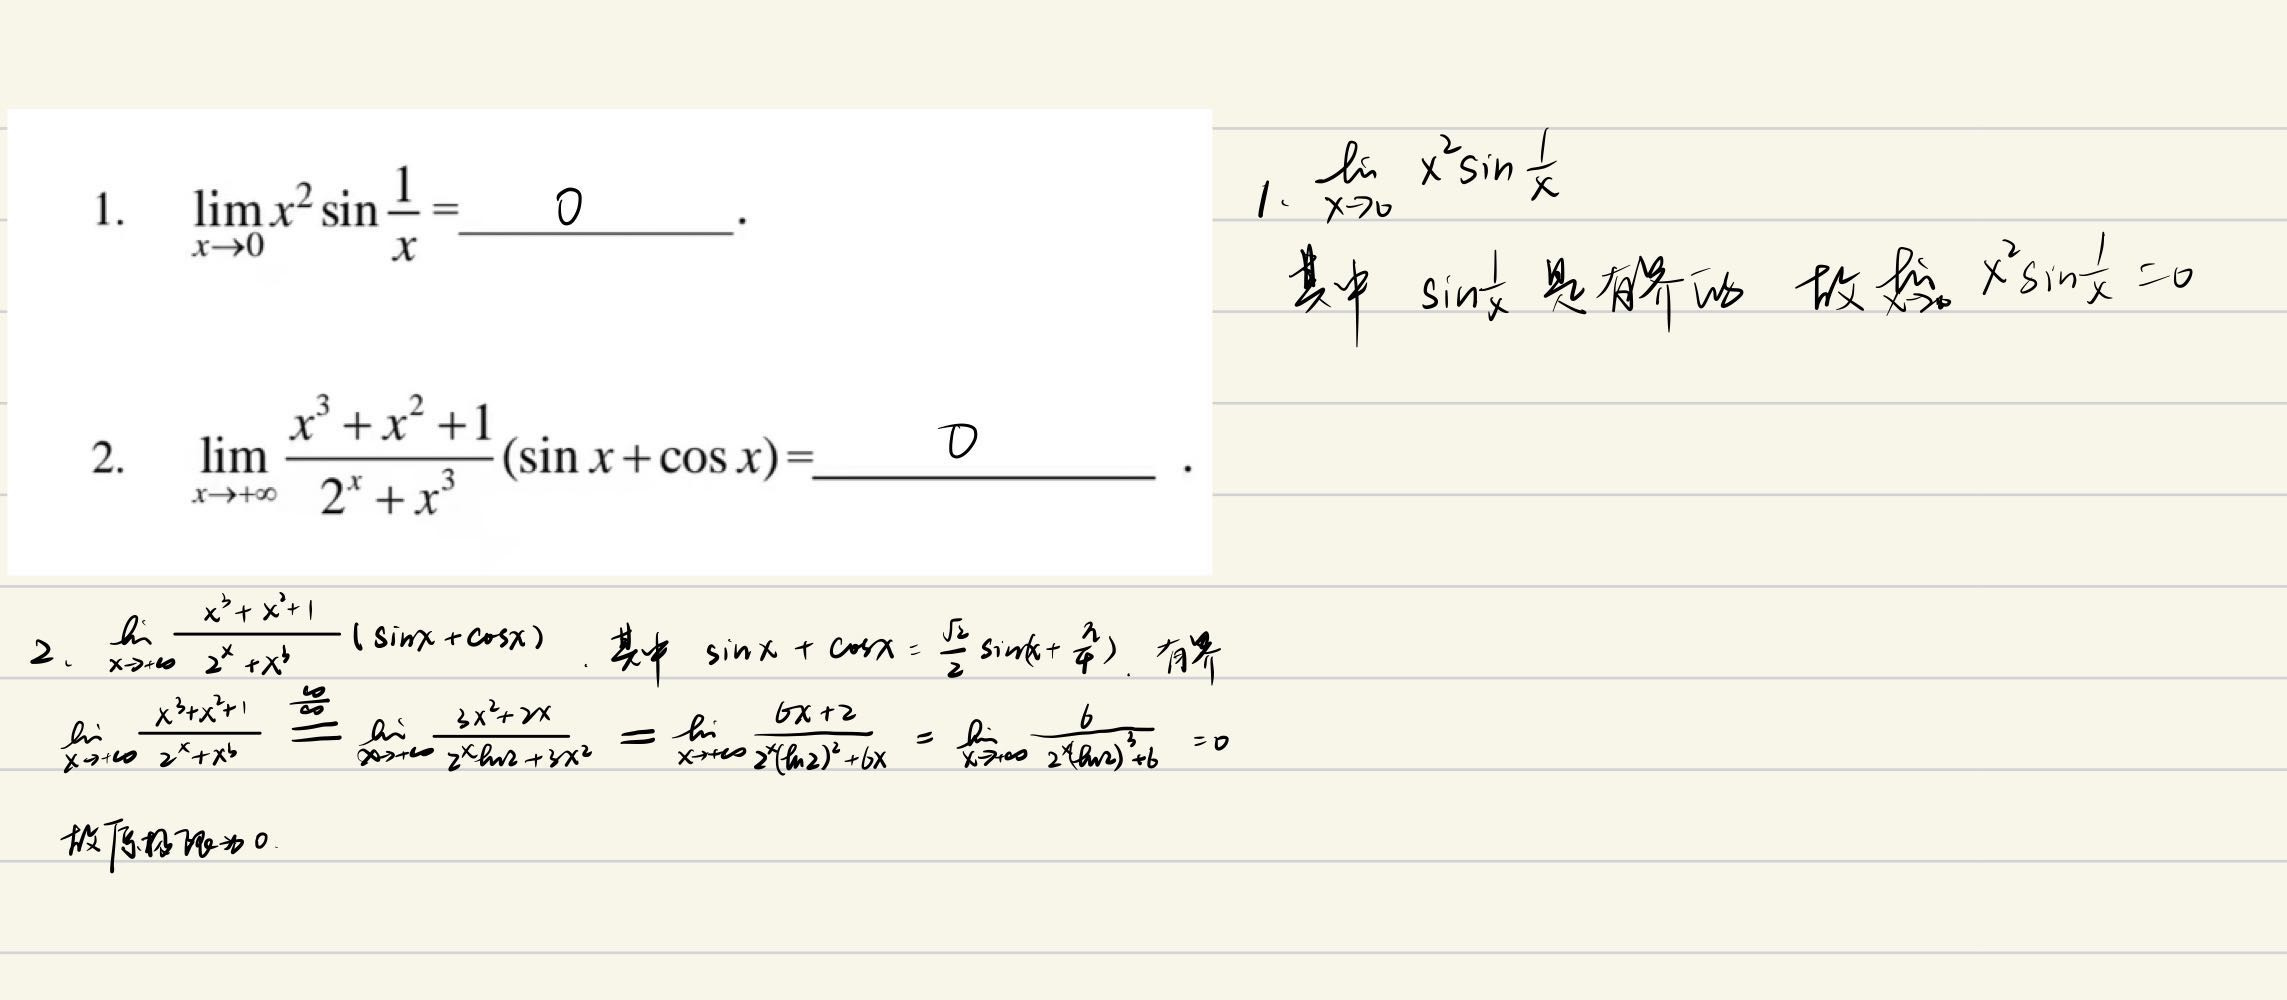 1. lim x→0 x² sin 1/x = 0 .
2. lim x→+∞ (x³ + x² + 1)/(2ˣ + x³) (sin x + cos x) = 0 .
1. lim x→0 x² sin 1/x
其中 sin 1/x 是有界的 故 lim x→0 x² sin 1/x = 0
2、 lim x→+∞ (x³ + x² + 1)/(2ˣ + x³) (sinx + cosx) . 其中 sinx + cosx = √2/2 sin(x + π/4) . 有界
lim x→+∞ (x³+x²+1)/(2ˣ+x³) ∞/∞ = lim x→+∞ (3x²+2x)/(2ˣln2+3x²) = lim x→+∞ (6x+2)/(2ˣ(ln2)²+6x) = lim x→+∞ 6/(2ˣ(ln2)³+6) = 0
故原极限为0.